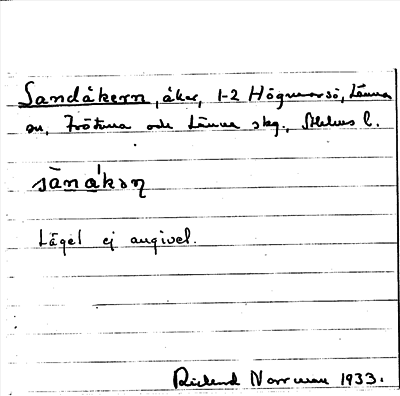 Sandåkern, åker, 1-2 Högmarsö, Länna
sn, Frötuna och Länna skg., Sthlms l.
sànákəɳ
Läget ej angivet.
Rickard Norrman 1933.